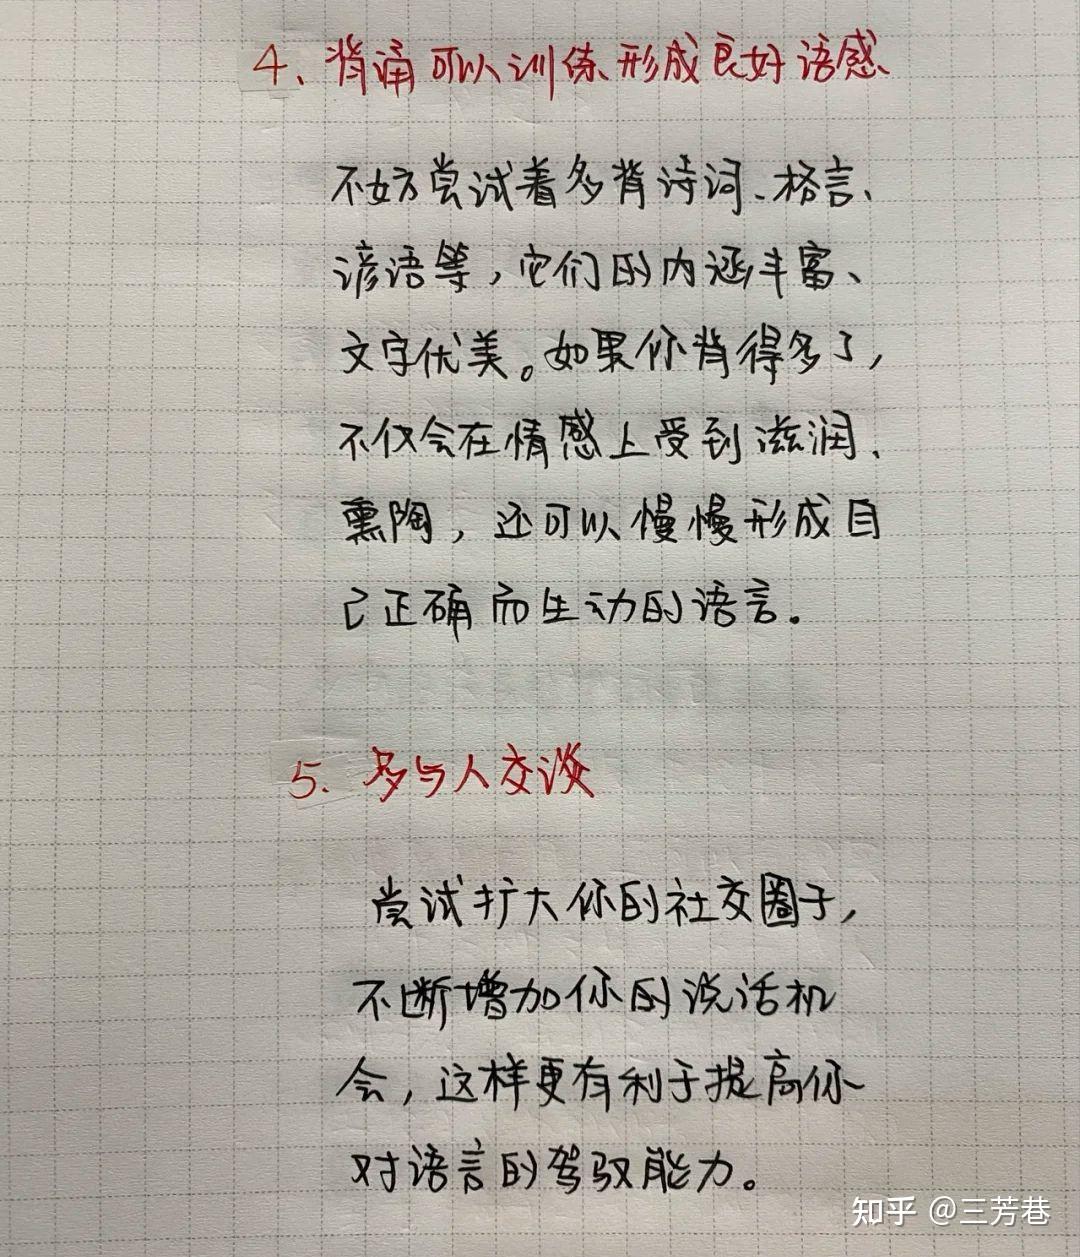 4、背诵可以训练形成良好语感
不妨尝试着多背诗词、格言、
谚语等，它们的内涵丰富、
文字优美。如果你背得多了，
不仅会在情感上受到滋润、
熏陶，还可以慢慢形成自
己正确而生动的语言。
5、多与人交谈
尝试扩大你的社交圈子，
不断增加你的说话机
会，这样更有利于提高你
对语言的驾驭能力。
知乎 @三芳巷